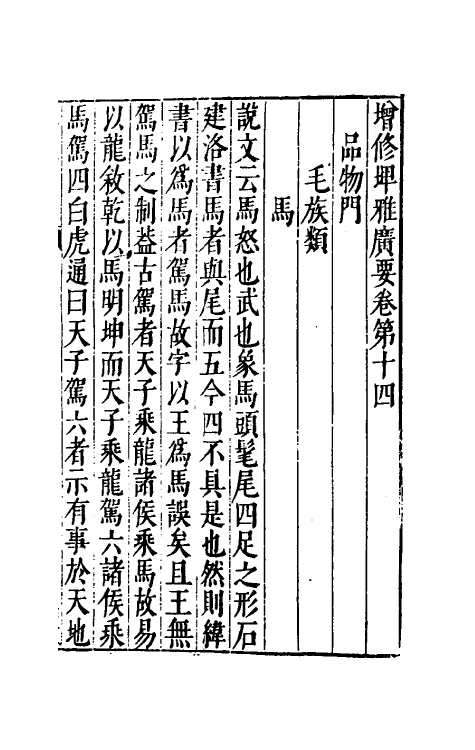 增修埤雅廣要卷第十四
品物門
毛族類
馬
說文云馬怒也武也象馬頭髦尾四足之形石
建洛書馬者與尾而五今四不具是也然則緯
書以為馬者駕馬故字以王為馬誤矣且王無
駕馬之制葢古駕者天子乘龍諸侯乘馬故易
以龍敘乾以馬明坤而天子乘龍駕六諸侯乘
馬駕四白虎通曰天子駕六者示有事於天地